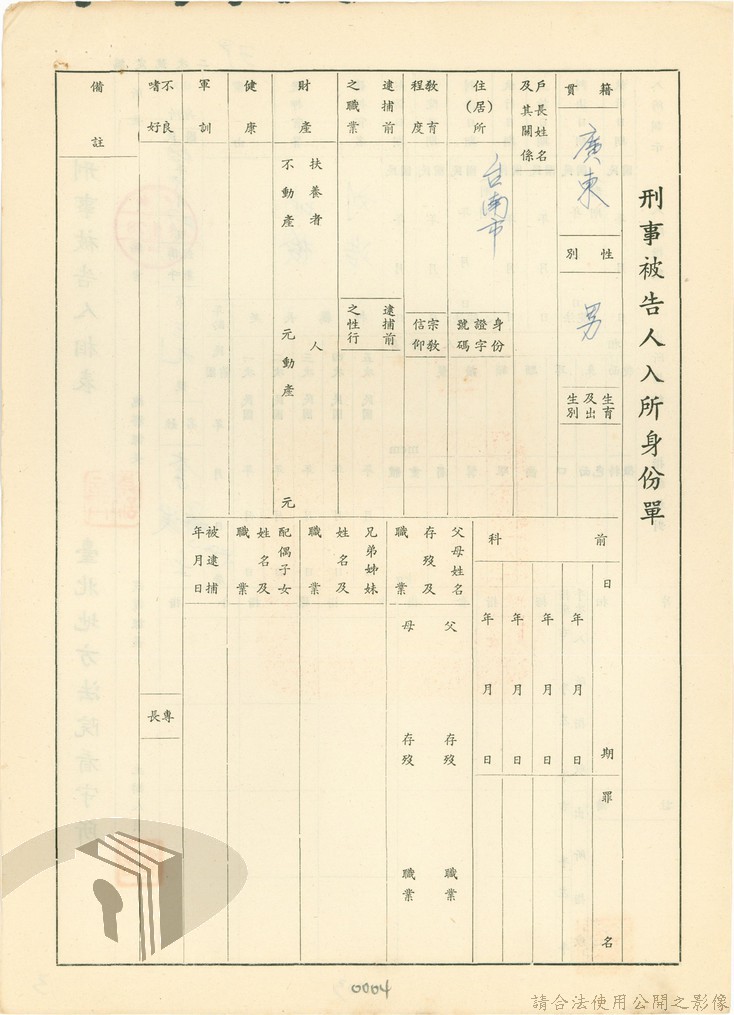 刑事被告人入所身份單
籍貫
廣東
性別
男
生育及出生別
前科
日期
年 月 日
年 月 日
年 月 日
年 月 日
罪名
戶長姓名及其關係
住(居)所
台南市
身份證字號碼
教育程度
宗教信仰
逮捕前之職業
逮捕前之性行
財產
扶養者 人
不動產 元
動產 元
健康
軍訓
不良嗜好
專長
備註
父母姓名存歿及職業
父 存歿 職業
母 存歿 職業
兄弟姊妹姓名及職業
配偶子女姓名及職業
被逮捕年月日
0004
請合法使用公開之影像